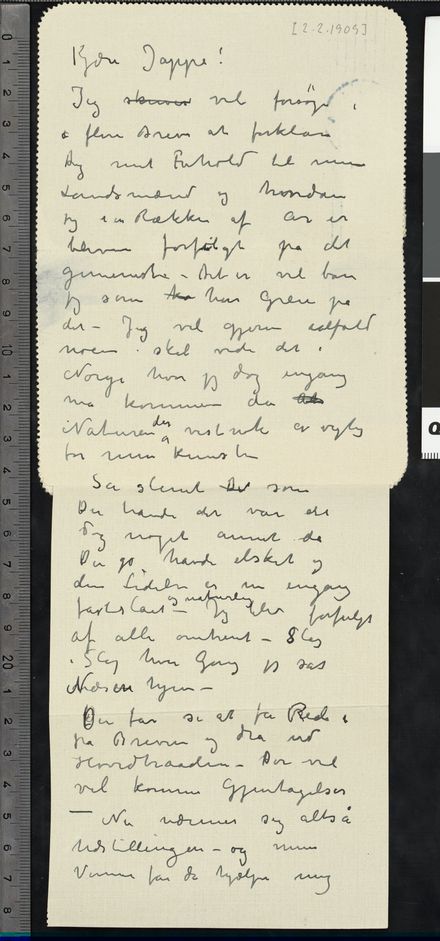 [2.2.1909]
Kjære Jappe!
Jeg skriver vil forsøge i
flere Breve at forklare
dig mit Forhold til mine
Landsmænd og hvordan
jeg i en Rækken af Aar er
bleven forfulgt på det
gemeneste – Det er vel bare
jeg som har Greie på
det – Jeg vil gjerne ialfald
noen skal vide det i
Norge hvor jeg dog engang
må komme da
Naturen der vistnok er vigtig
for min Kunst
Så slemt som
Du havde det var det
dog noget annet da
Du jo havde elsket og
den Lidelse er nu engang
fastslaat og naturlig – Jeg blev forfulgt
af alle omtrent – Slag
i Slag hver Gang jeg sad
Næsen hjem –
Du får se at få Rede i
på Breven og dra ud
Hovedtraaden – Der vil
vel komme Gjentagelser
– Nu nærmer sig altså
Udstillingen – og mine
Venner får da hjælpe mig